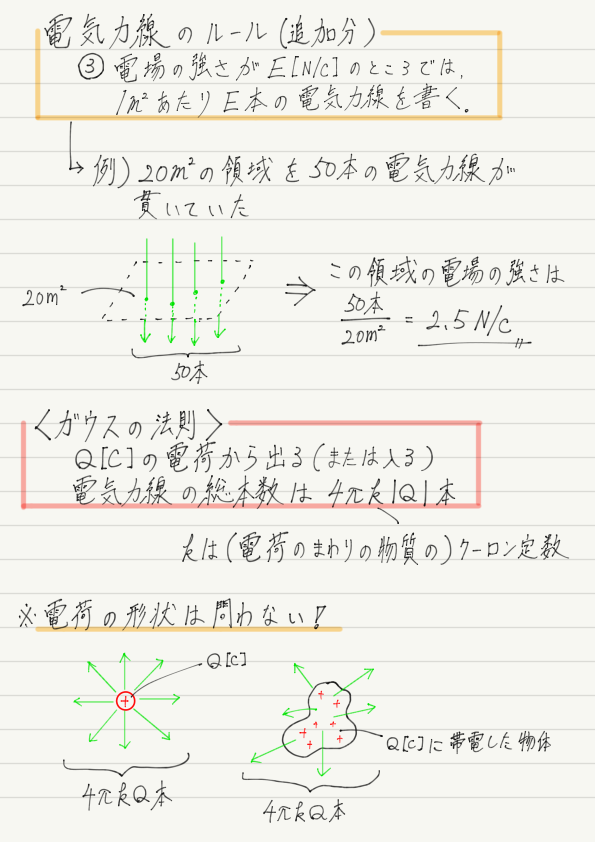 電気力線のルール(追加分)
③ 電場の強さがE[N/C]のところでは、
1m²あたりE本の電気力線を書く。
例) 20m²の領域を50本の電気力線が
貫いていた
20m²
50本
⇒ この領域の電場の強さは
50本/20m² = 2.5 N/C
〈ガウスの法則〉
Q[C]の電荷から出る(または入る)
電気力線の総本数は4πk|Q|本
kは(電荷のまわりの物質の)クーロン定数
※電荷の形状は問わない!
Q[C]
+
4πkQ本
+ + + + + + + +
Q[C]に帯電した物体
4πkQ本